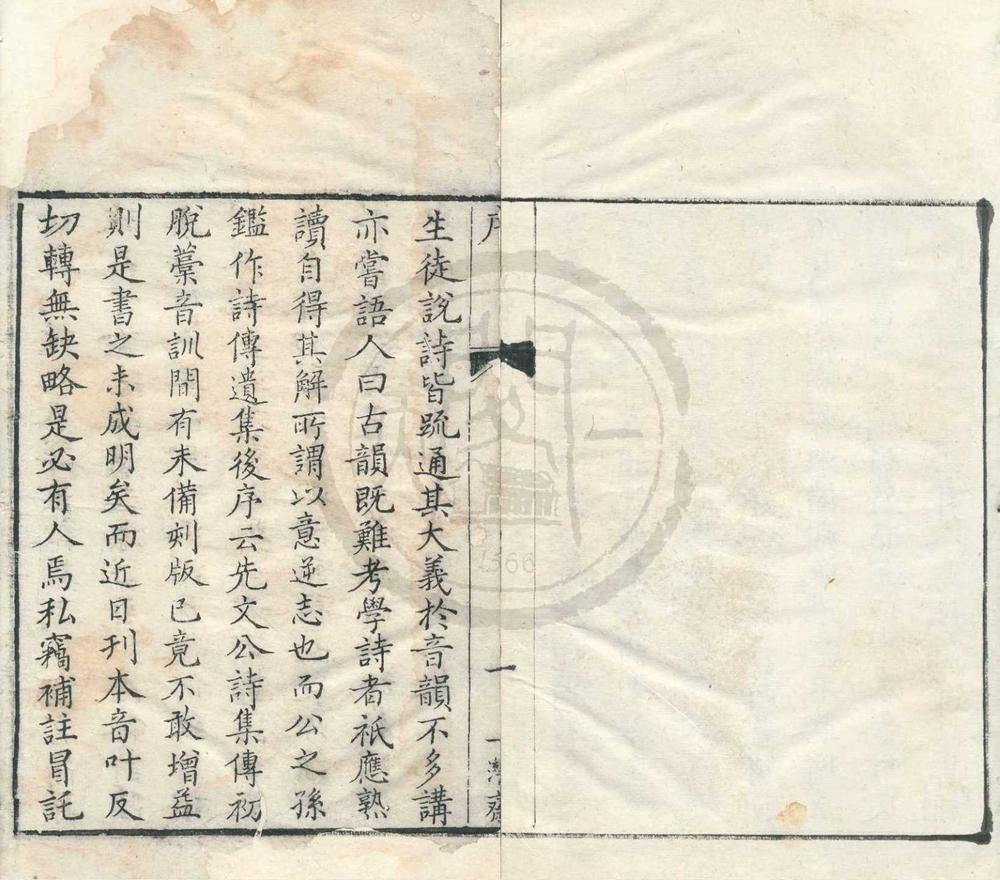 序
一
一灣齋
生徒說詩皆䟽通其大義於音韻不多講
亦嘗語人曰古韻既難考學詩者祇應熟
讀自得其解所謂以意逆志也而公之孫
鑑作詩傳遺集後序云先文公詩集傳初
脫藁音訓間有未備刻版已竟不敢增益
則是書之未成明矣而近日刊本音叶反
切轉無缺略是必有人焉私竊補註冒託
1566